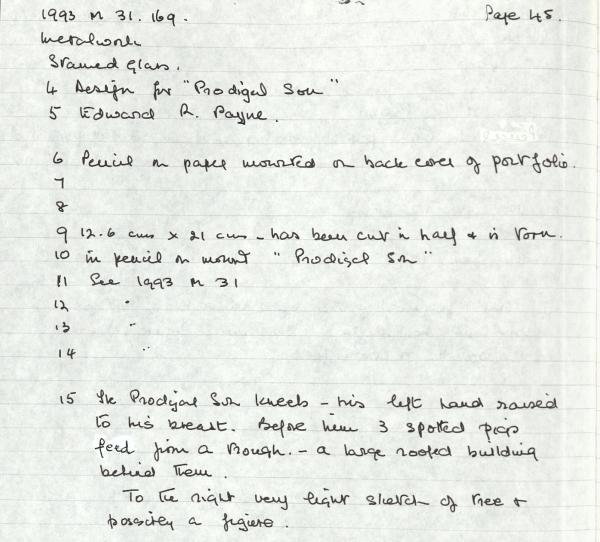 1993 M 31. 169. Page 45.
Metalwork
Stained Glass.
4 Design for "Prodigal Son"
5 Edward R. Payne.
6 Pencil on paper mounted on back cover of portfolio.
7
8
9 12.6 cms x 21 cms - has been cut in half & is torn.
10 in pencil on mount "Prodigal Son"
11 See 1993 M 31
12 "
13 "
14 "
15 The Prodigal Son kneels - his left hand raised
to his breast. Before him 3 spotted pigs
feed from a trough. - a large roofed building
behind them.
To the right very light sketch of tree &
possibly a figure.